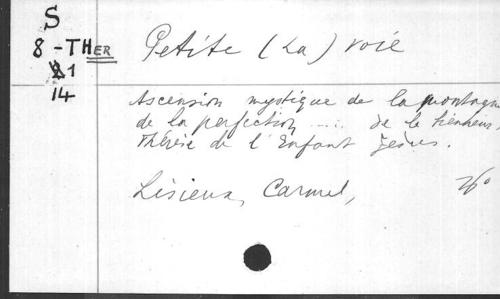 S
8 - THER
21
14
Petite (La) voie
Ascension mystique de la montagne
de la perfection .... de la bienheus.
Thérèse de l'Enfant Jésus.
Lisieux, Carmel,